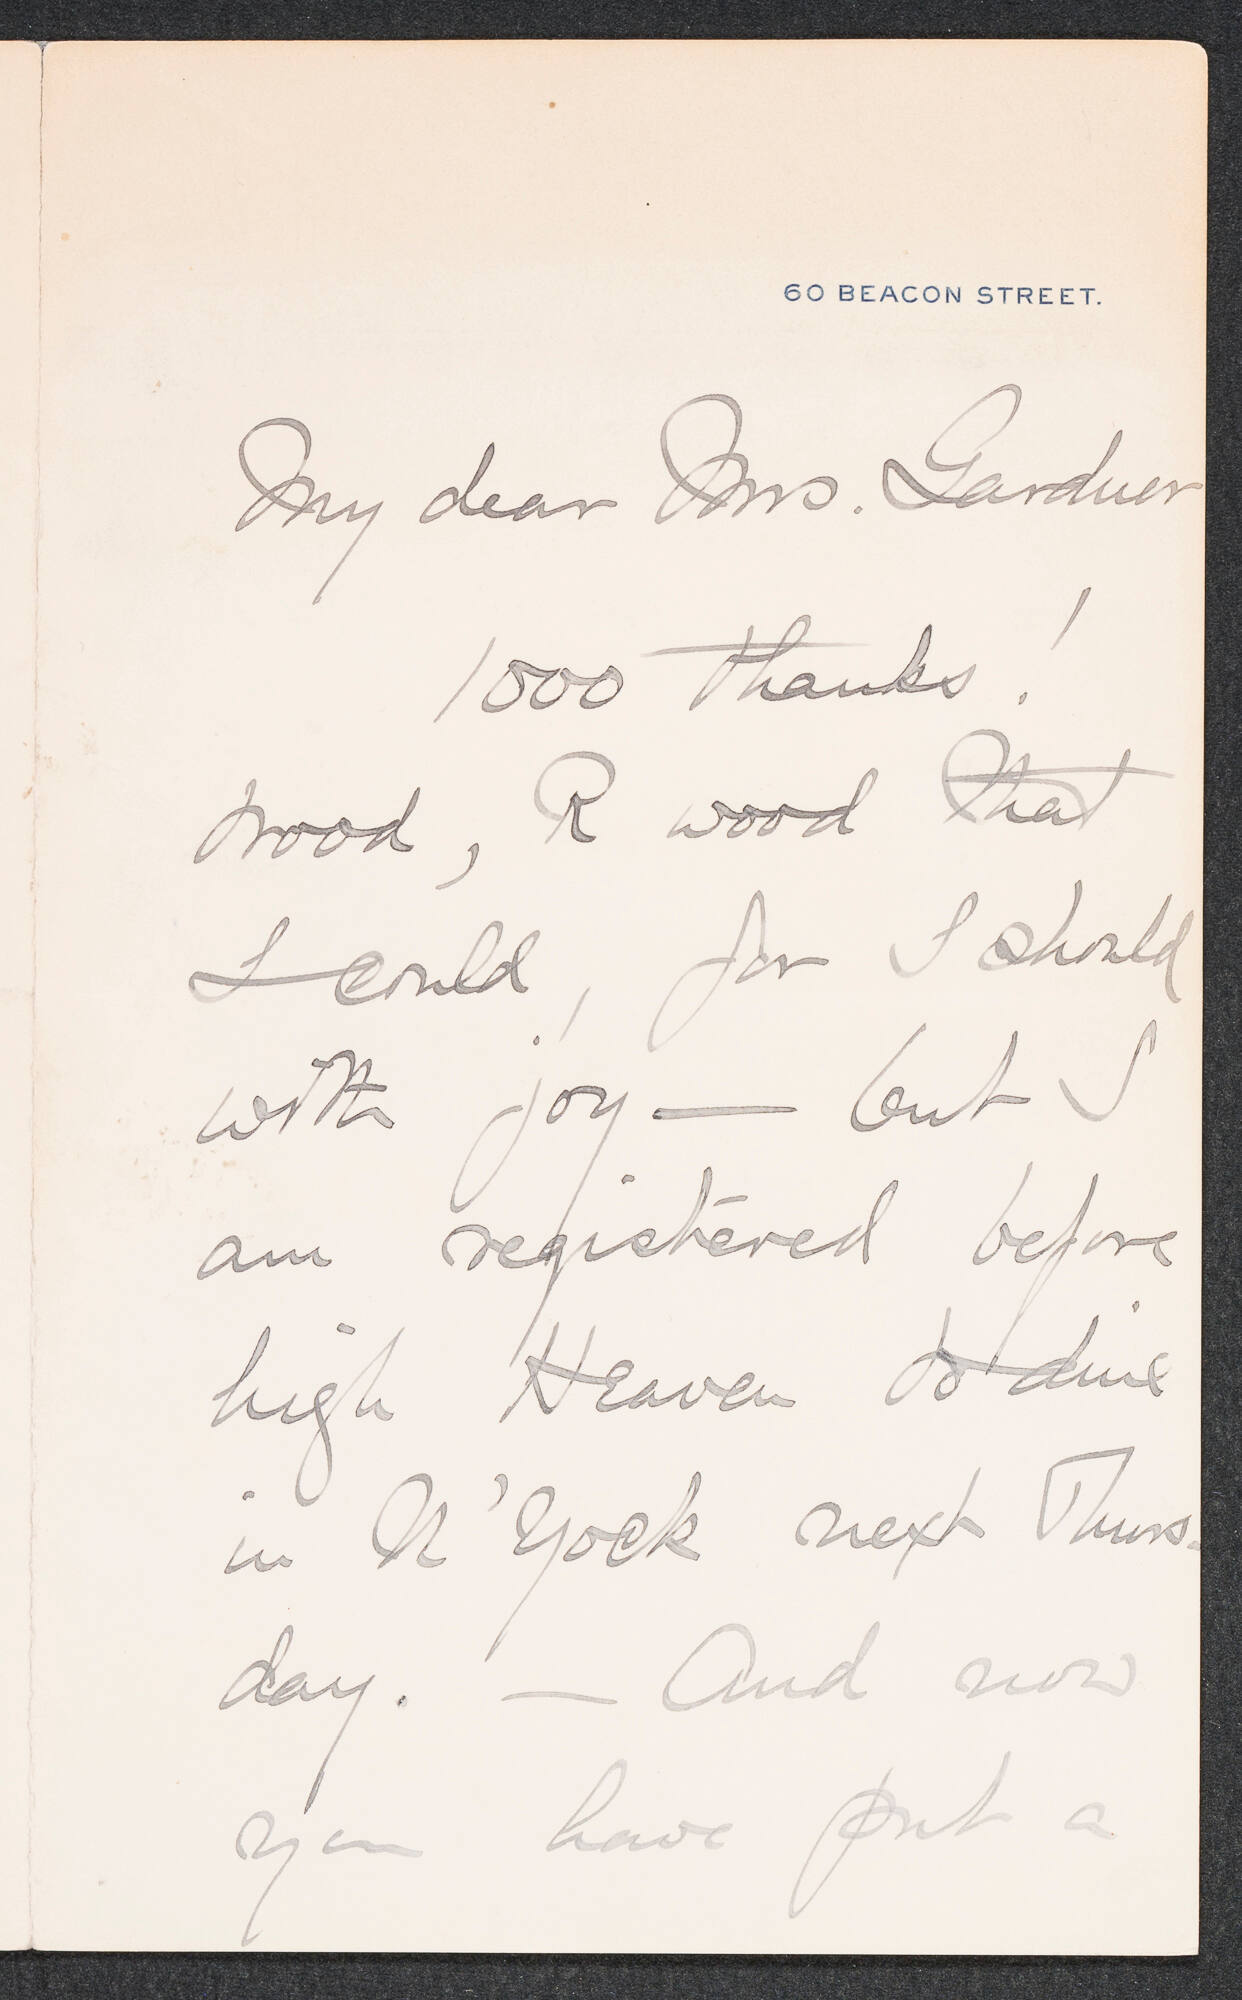 60 BEACON STREET.
My dear Mrs. Gardner
1000 thanks!
wood, R wood that
I could, for I should
with joy — but I
am registered before
high Heaven to dine
in N'Yock next Thurs-
day. — And now
you have put a